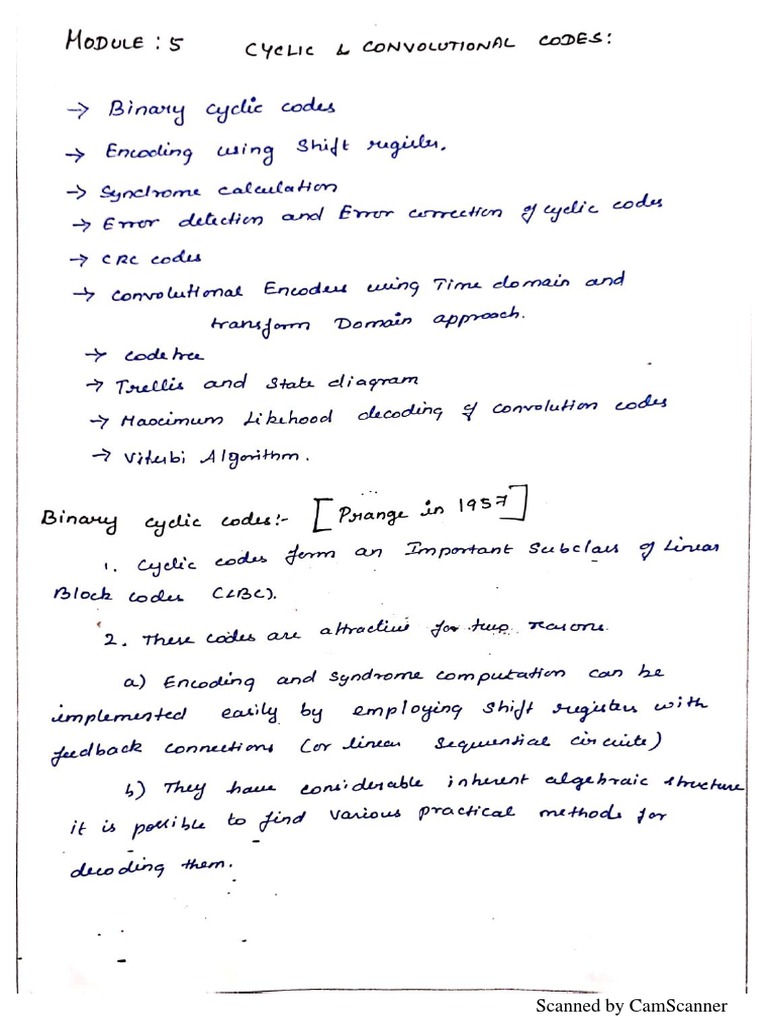 MODULE : 5 CYCLIC & CONVOLUTIONAL CODES:
→ Binary cyclic codes
→ Encoding using Shift register.
→ Syndrome calculation
→ Error detection and Error correction of cyclic codes
→ CRC codes
→ Convolutional Encoders using Time domain and
transform Domain approach.
→ code tree
→ Trellis and State diagram
→ Maximum Likehood decoding of convolution codes
→ Viterbi Algorithm.
Binary cyclic codes:- [Prange in 1957]
1. Cyclic codes form an Important Subclass of Linear
Block codes (LBC).
2. These codes are attractive for two reasons.
a) Encoding and Syndrome computation can be
implemented easily by employing Shift registers with
feedback connections (or linear sequential circuits)
b) They have considerable inherent algebraic structure
it is possible to find various practical methods for
decoding them.
Scanned by CamScanner